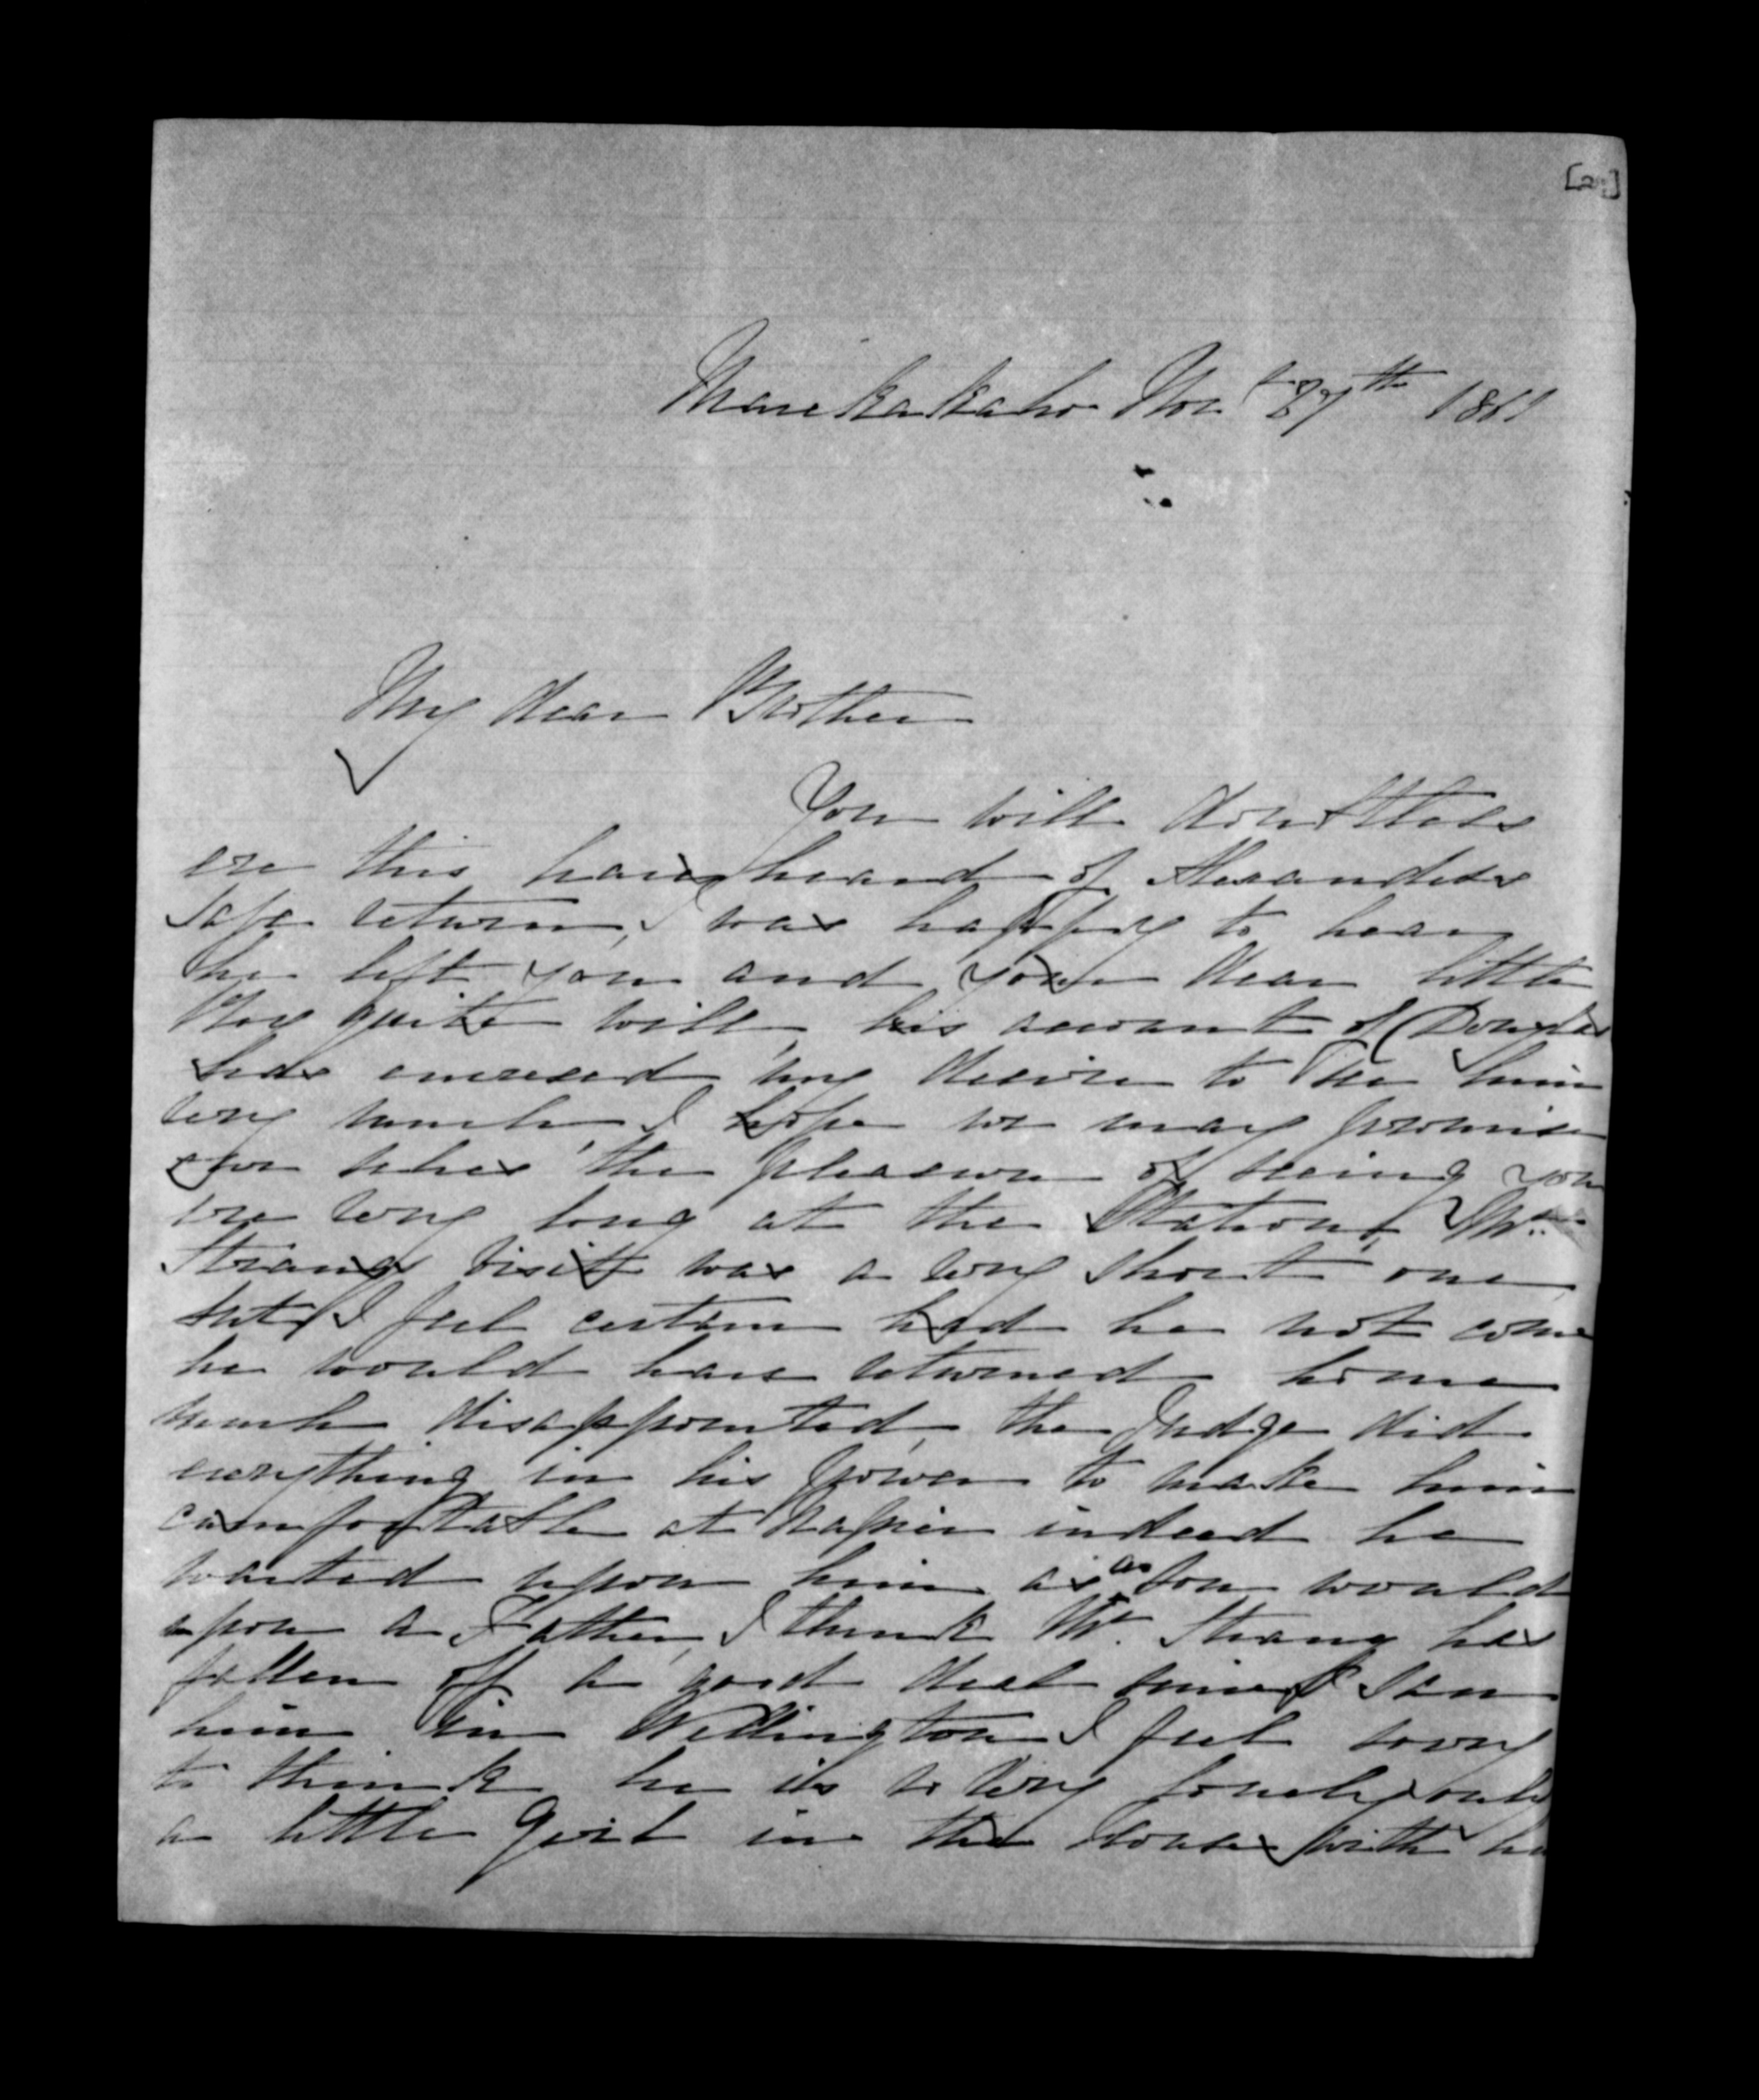 Marikakaho Nov 27th 1861
My dear Brother
You will doubtless
ere this have heard of Alexanders
safe return, I was happy to hear
he left you and your dear little
Boy quite well, his account of Douglas
has encresed my desire to see him
very much, I hope we may promise
our selves the pleasure of seeing you
ere very long at the Station, Mr
Strangs visit was a very short one
but I feel certain had he not come
he would have returned home
much disappointed, the Judge did
everything in his power to make him
comfortable at Napier indeed he
waited upon him as as you would
upon a Father, I think Mr. Strang has
fallen off a good deal since I saw
him in Wellington I feel sorry
to think he is so very lonely only
a little Girl in the House with